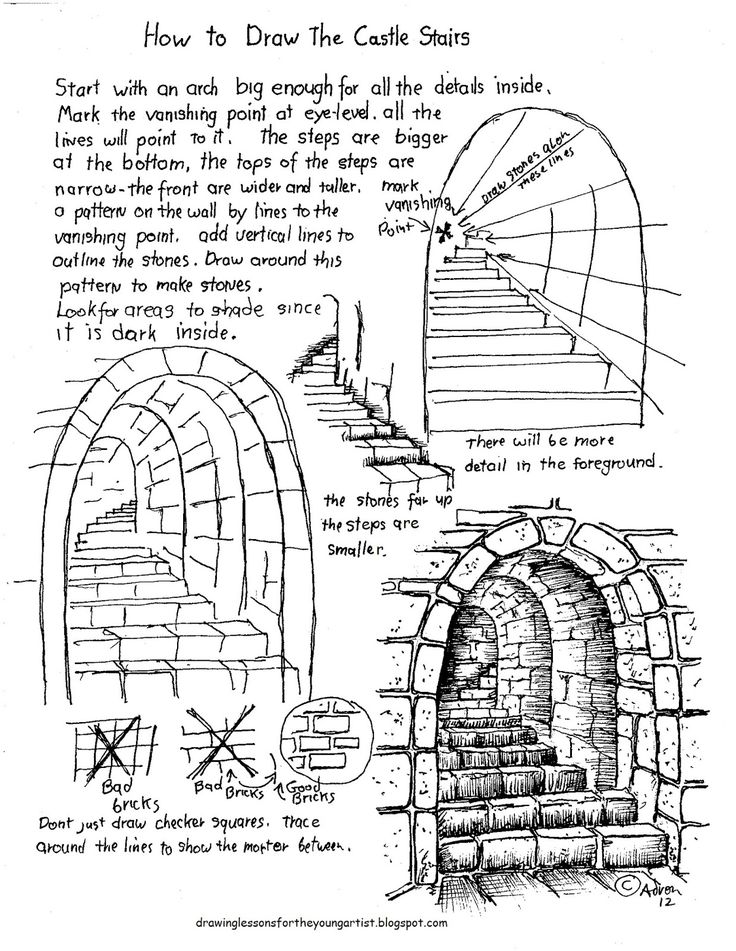 How to Draw The Castle Stairs
Start with an arch big enough for all the details inside.
Mark the vanishing point at eye-level. all the
lives will point to it. The steps are bigger
at the bottom, the tops of the steps are
narrow-the front are wider and taller.
a pattern on the wall by lines to the
vanishing point. add vertical lines to
outline the stones. Draw around this
pattern to make stones.
Look for areas to shade since
it is dark inside.
mark
vanishing
point
Draw stones along
these lines
there will be more
detail in the foreground.
the stones far up
the steps are
smaller.
Bad
bricks
Bad Bricks
Good
Bricks
Dont just draw checker squares. Trace
around the lines to show the morter between.
© Adron
12
drawinglessonsfortheyoungartist.blogspot.com